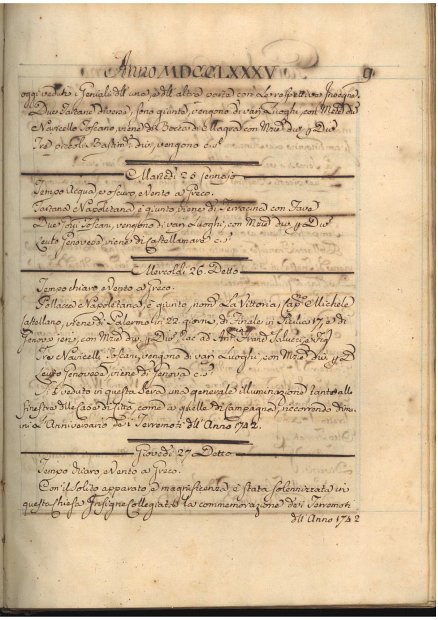 Anno MDCCLXXXV 9
oggi veduto i Geniali dell'una, e dell'altra Corte con le rispettive Insegne.
Due Tartane diverse, sono giunte, vengono di vari Luoghi, con
Navicello Toscano, viene da Bocca di Magra con
Tre piccoli Bastim.ti div.si vengono c.s.
Martedi 25 Gennajo
Tempo Acqua, e oscuro, e Vento a Greco.
Tartana Napoletana è giunta, viene di Terracina con Fave
Due Toscani, vengono di vari Luoghi, con
Leuto Genovese viene di Castellamare c.s.
Mercoldi 26. Detto
Tempo chiaro, e Vento a Greco.
Pollacca Napoletana è giunta, nom.a La Vittoria, Cap. Michele
Castellano, viene di Palermo in 22. giorni, di Finale in Sicilia 17, e di
Genova con
Tre Navicelli Toscani, vengono di vari Luoghi, con
Leuto Genovese viene di Genova c.s.
Si è veduto in questa Sera una generale illuminazione tanto alle
finestre delle Case di Città, come a quelle di Campagna, ricorrendo dima-
ni l'Anniversario de' Terremoti dell'Anno 1742.
Giovedi 27. Detto
Tempo chiaro, e Vento a Greco.
Con il Solito apparato, e magnificenza, è stata solennizzata in
questa Chiesa Insigne Collegiata la commemorazione de i Terremoti
dell'Anno 1742